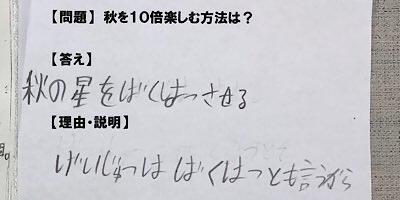 【問題】 秋を10倍楽しむ方法は？
【答え】
秋の星をばくはつさせる
【理由・説明】
げいじゅつは ばくはつとも言うから